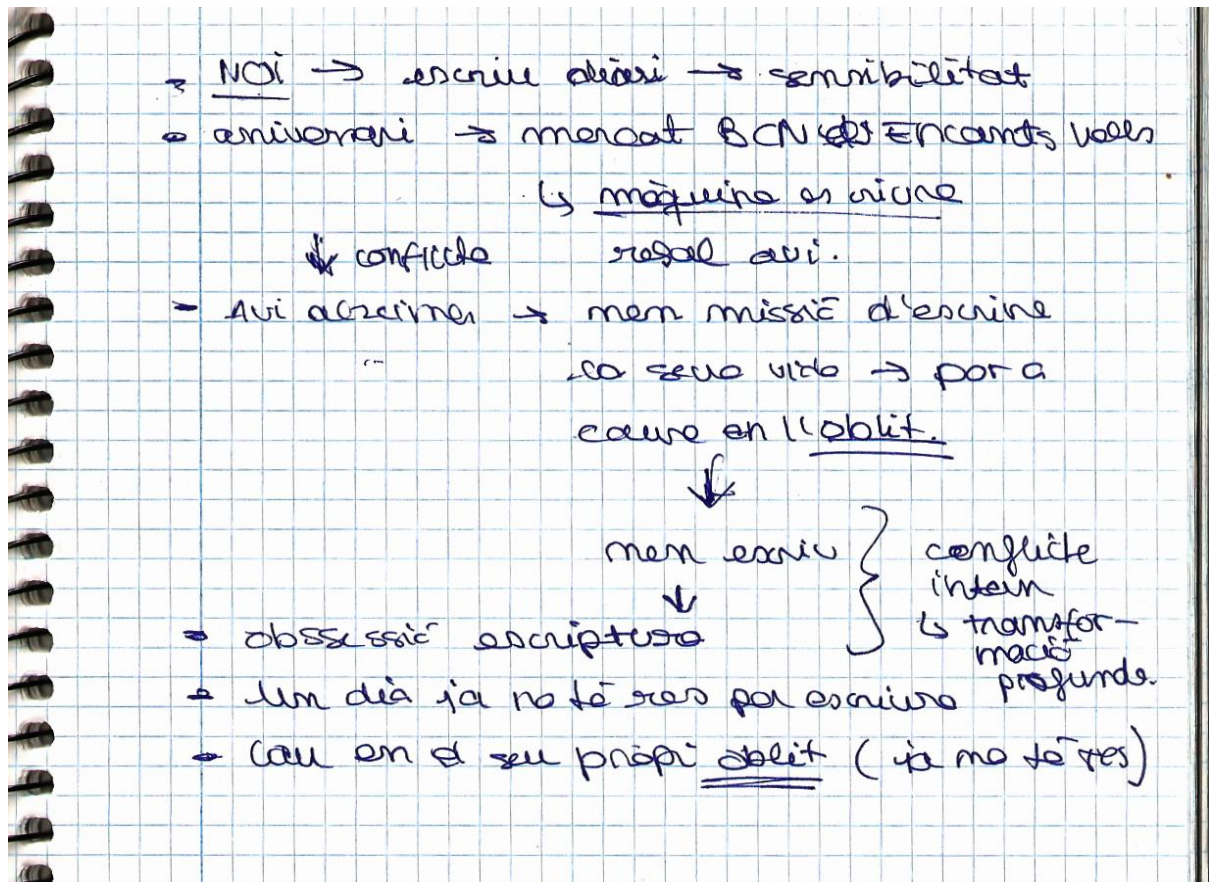 - NOi → escriu diari → sensibilitat
- aniversari → mercat BCN Encants Vells
↳ màquina escriure
↓ conflicte regal avi.
- Avi alzeimer → nen missió d'escriure
la seva vida → por a
caure en l'oblit.
↓
nen escriu } conflicte
intern
↓
↳ transfor-
- obsessió escriptura
mació
profunda.
- Un dia ja no té res per escriure
- Cau en el seu propi oblit (ja no té res)